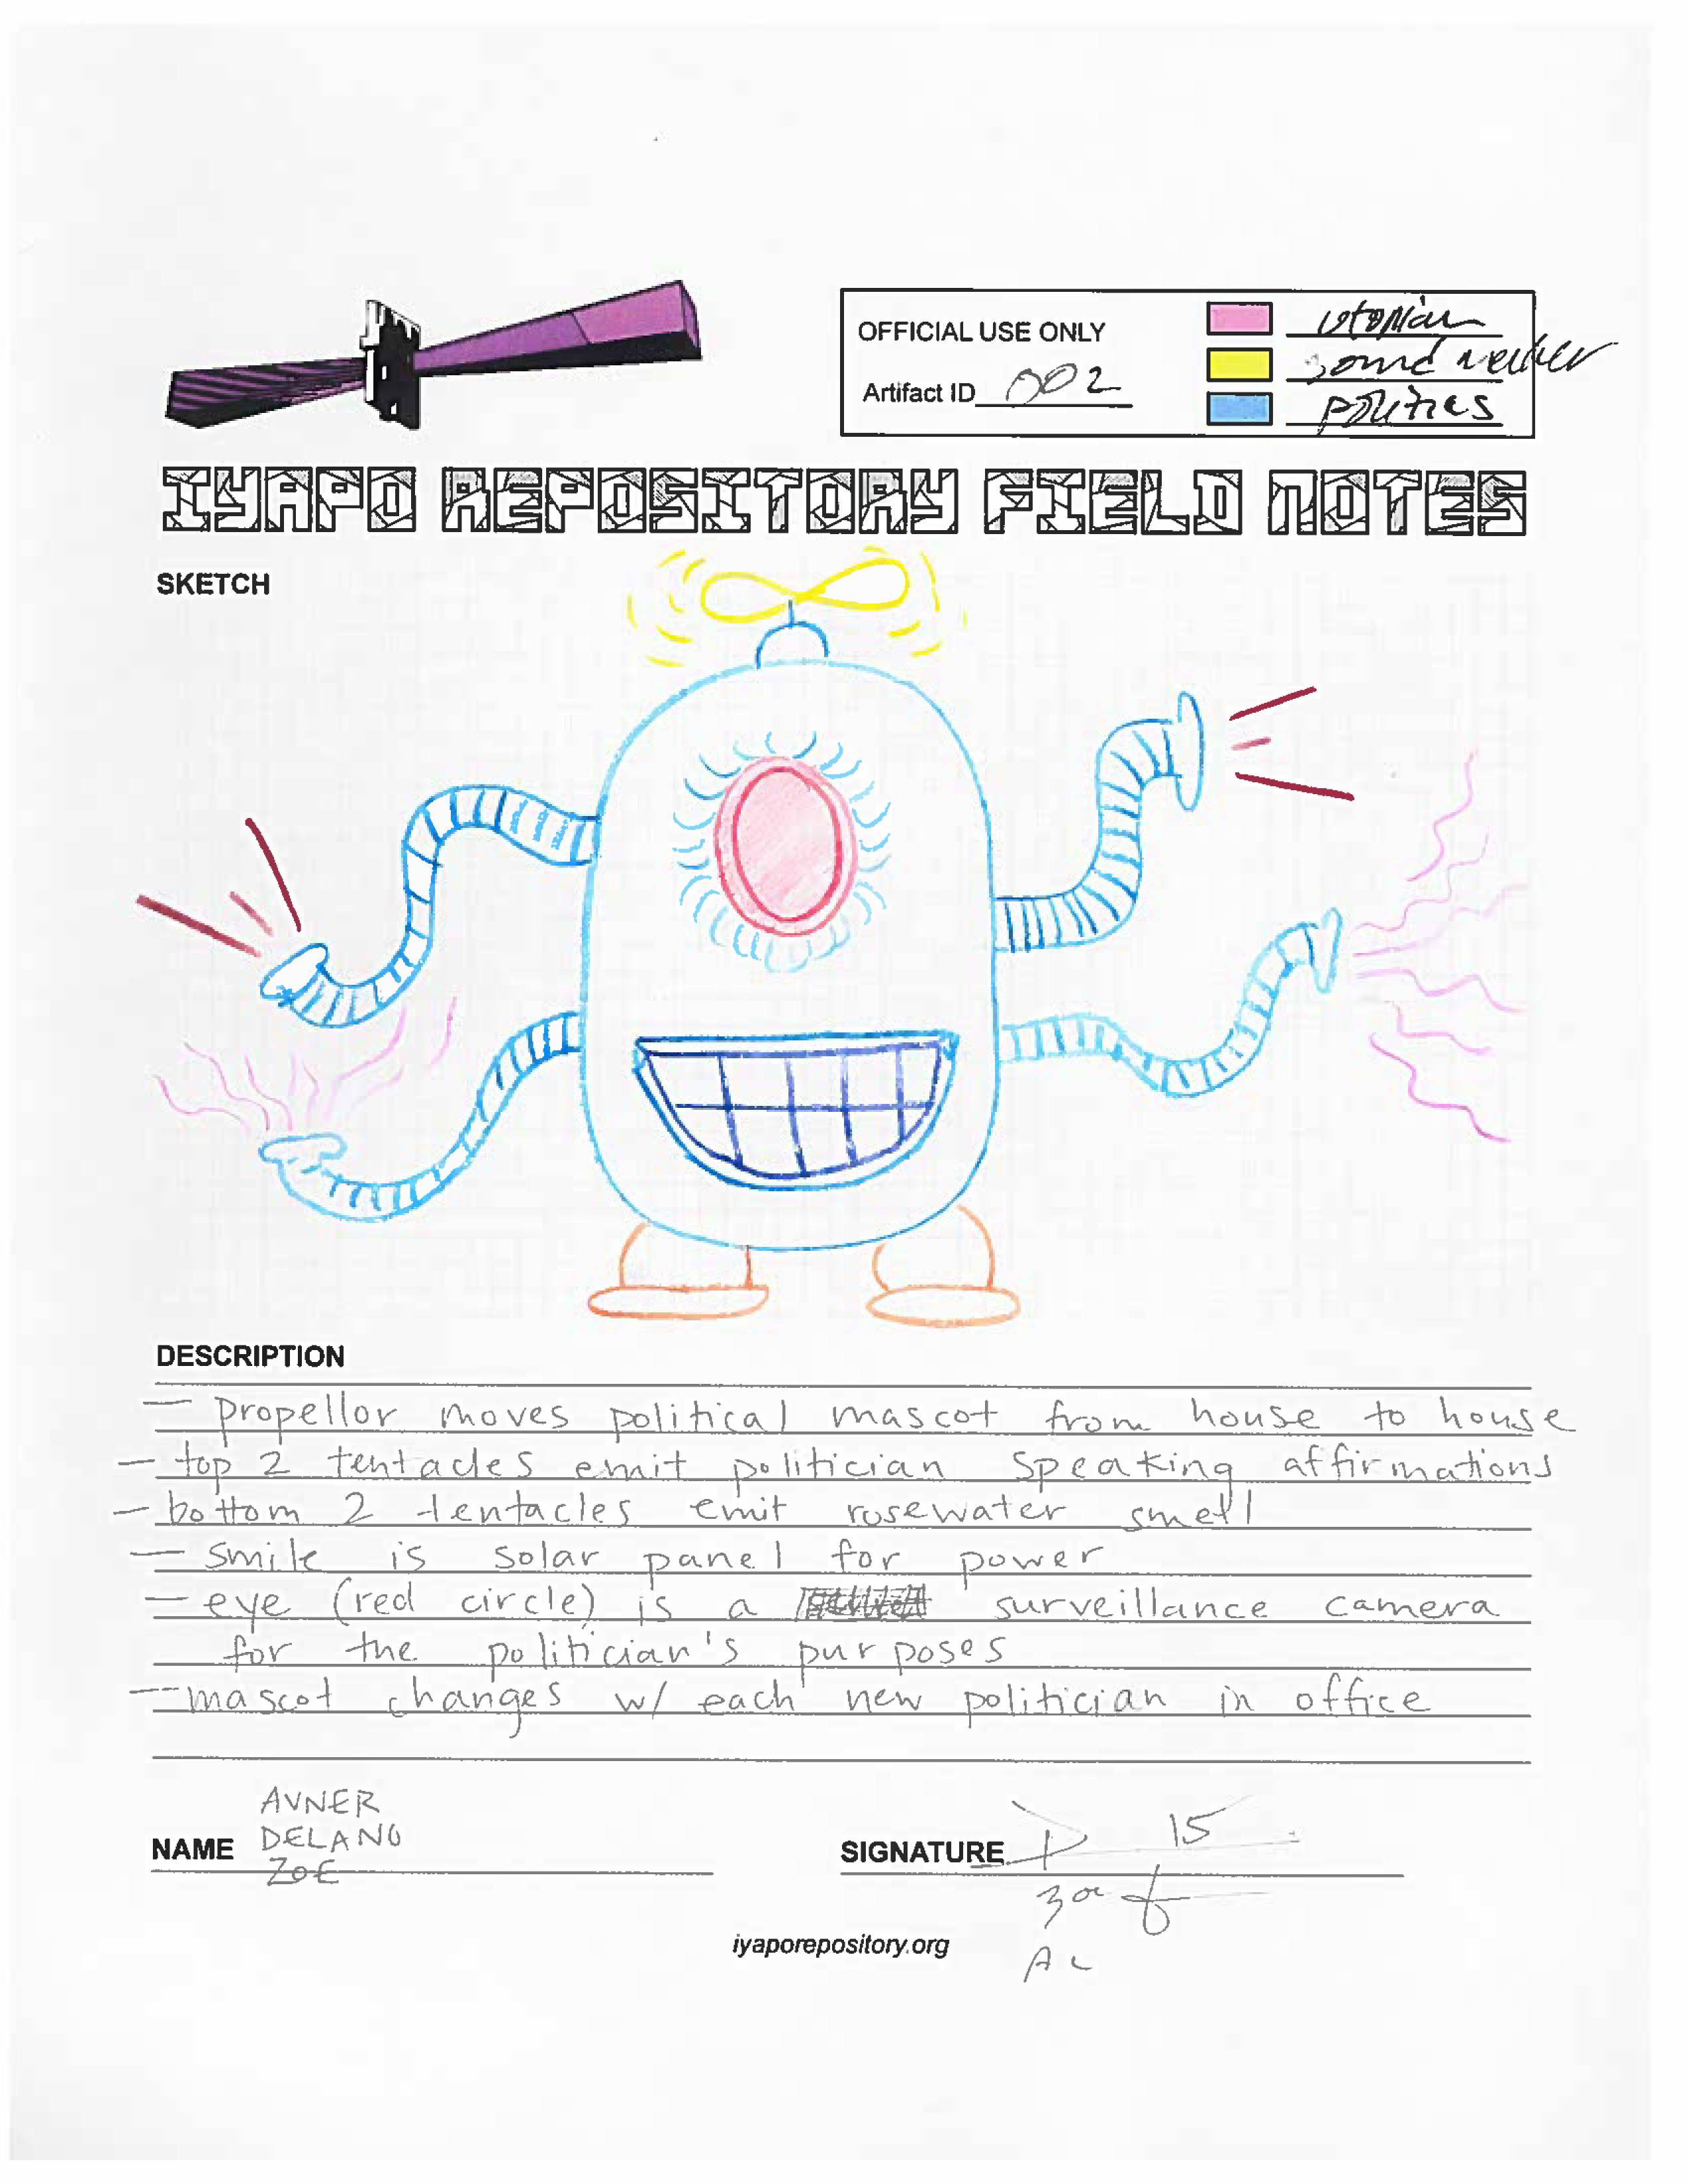 OFFICIAL USE ONLY
utopian
sound
Artifact ID 002
politics
IYAPO REPOSITORY FIELD NOTES
SKETCH
DESCRIPTION
— propellor moves political mascot from house to house
— top 2 tentacles emit politician speaking affirmations
— bottom 2 tentacles emit rosewater smell
— smile is solar panel for power
— eye (red circle) is a surveillance camera
for the politician's purposes
— mascot changes w/ each new politician in office
AVNER
NAME DELANO
ZOE
SIGNATURE
iyaporepository.org